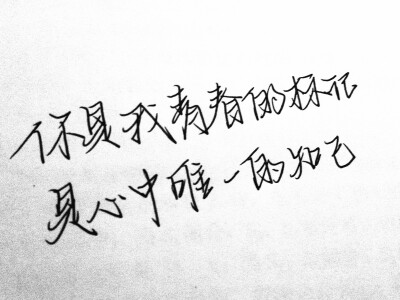 你是我青春的标记
是心中唯一的知己